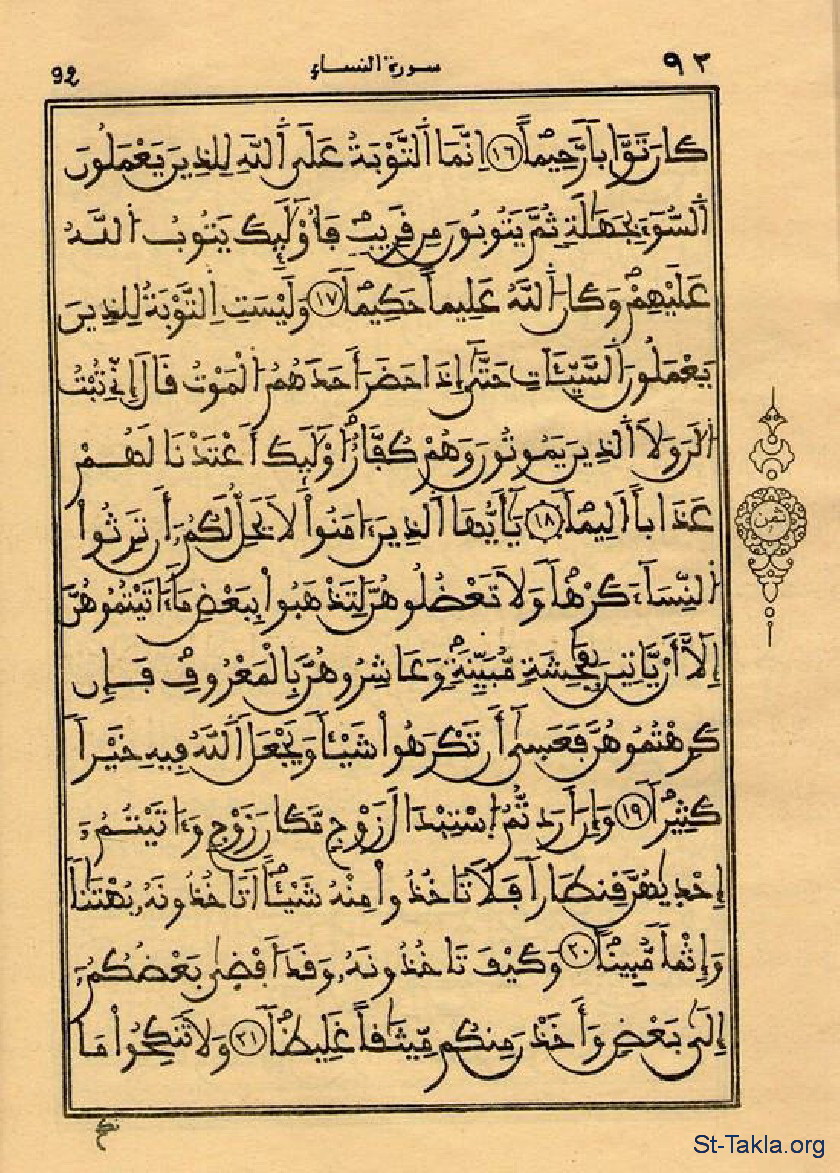 92 سورة النساء ٩٢
كَانَ تَوَّاباً رَّحِيماً ١٦ اِنَّمَا اَ۬لتَّوْبَةُ عَلَي اَ۬للَّهِ لِلذِينَ يَعْمَلُونَ
اَ۬لسُّوٓءَ بِجَهَٰلَةٍ ثُمَّ يَتُوبُونَ مِن قَرِيبٍ فَأُوْلَٰٓئِكَ يَتُوبُ اُ۬للَّهُ
عَلَيْهِمْ وَكَانَ اَ۬للَّهُ عَلِيماً حَكِيماً ١٧ وَلَيْسَتِ اِ۬لتَّوْبَةُ لِلذِينَ
يَعْمَلُونَ اَ۬لسَّيِّـَٔاتِ حَتَّيٰٓ إِذَا حَضَرَ أَحَدَهُمُ اُ۬لْمَوْتُ قَالَ إِنِّے تُبْتُ
اُ۬لَٰنَ وَلَا اَ۬لذِينَ يَمُوتُونَ وَهُمْ كُفَّارٌ ا۟وْلَٰٓئِكَ أَعْتَدْنَا لَهُمْ
عَذَاباً اَلِيماً ١٨ يَٰٓأَيُّهَا اَ۬لذِينَ ءَامَنُواْ لَا يَحِلُّ لَكُمُۥٓ أَن تَرِثُواْ
اُ۬لنِّسَآءَ كَرْهاً وَلَا تَعْضُلُوهُنَّ لِتَذْهَبُواْ بِبَعْضِ مَآ ءَاتَيْتُمُوهُنَّ
إِلَّآ أَنْ يَّاتِينَ بِفَٰحِشَةٍ مُّبَيِّنَةٍ وَعَاشِرُوهُنَّ بِالْمَعْرُوفِ فَإِن
كَرِهْتُمُوهُنَّ فَعَسَيٰٓ أَن تَكْرَهُواْ شَيْـٔاً وَيَجْعَلَ اَ۬للَّهُ فِيهِ خَيْراً
كَثِيراً ١٩ وَإِنْ أَرَدتُّمُ اُ۪سْتِبْدَالَ زَوْجٍ مَّكَانَ زَوْجٍ وَءَاتَيْتُمُۥٓ
إِحْدَيٰهُنَّ قِنطَاراً فَلَا تَاخُذُواْ مِنْهُ شَيْـٔاً اَتَاخُذُونَهُۥ بُهْتَٰناً
وَإِثْماً مُّبِيناً ٢٠ وَكَيْفَ تَاخُذُونَهُۥ وَقَدَ اَفْضَيٰ بَعْضُكُمُۥٓ
إِلَيٰ بَعْضٍ وَأَخَذْنَ مِنكُم مِّيثَٰقاً غَلِيظاً ٢١ وَلَا تَنكِحُواْ مَا
ثمن
St-Takla.org